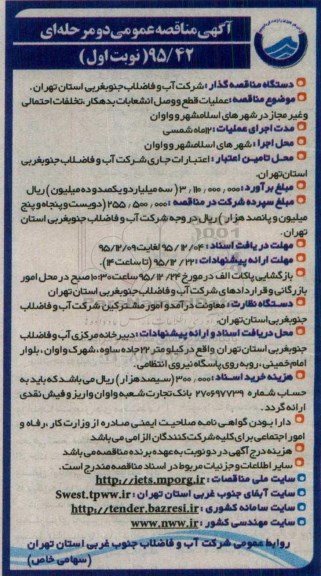 آگهی مناقصه عمومی دو مرحله ای
۹۵/۴۲ (نوبت اول)
دستگاه مناقصه گذار : شرکت آب و فاضلاب جنوبغربی استان تهران.
موضوع مناقصه : عملیات قطع و وصل انشعابات بدهکار ،تخلفات احتمالی
وغیر مجاز در شهر های اسلامشهر و واوان
مدت اجرای عملیات : ۱۲ماه شمسی
محل اجرا : شهر های اسلامشهر و واوان
محل تامین اعتبار : اعتبارات جاری شرکت آب و فاضلاب جنوبغربی
استان تهران.
مبلغ بر آورد : ۳٫۱۱۰٫۰۰۰٫۰۰۰ ( سه میلیارد و یکصد و ده میلیون ) ریال
مبلغ سپرده شرکت در مناقصه : ۲۵۵٫۵۰۰٫۰۰۰ (دویست و پنجاه و پنج
میلیون و پانصد هزار ) ریال در وجه شرکت آب و فاضلاب جنوبغربی استان
تهران.
مهلت دریافت اسناد : ۹۵/۱۲/۰۴ لغایت ۹۵/۱۲/۰۹
مهلت ارائه پیشنهادات : ۹۵/۱۲/۲۳ (تا ساعت ۱۴).
بازگشایی پاکات الف در مورخ ۹۵/۱۲/۲۴ ساعت ۱۰:۳۰ صبح در محل امور
بازرگانی و قراردادهای شرکت آب و فاضلاب جنوبغربی استان تهران
دستگاه نظارت : معاونت درآمد و امور مشترکین شرکت آب و فاضلاب
جنوبغربی استان تهران.
محل دریافت اسناد و ارائه پیشنهادات : دبیرخانه مرکزی آب و فاضلاب
جنوبغربی استان تهران واقع در کیلو متر ۲۲ جاده ساوه ، شهرک واوان ، بلوار
امام خمینی ، روبه روی پاسگاه نیروی انتظامی.
هزینه خرید اسناد : ۳۰۰٫۰۰۰ (سیصد هزار ) ریال می باشد که باید به
حساب شماره ۲۷۰۶۹۷۷۳۹ بانک تجارت شعبه واوان واریز و فیش نقدی
ارائه گردد.
دارا بودن گواهی نامه صلاحیت ایمنی صادره از وزارت کار ، رفاه و
امور اجتماعی برای کلیه شرکت کنندگان الزامی می باشد
هزینه درج آگهی در دو نوبت به عهده برنده مناقصه می باشد
سایر اطلاعات و جزئیات مربوط در اسناد مناقصه مندرج است.
سایت ملی مناقصات : http://iets.mporg.ir
سایت آبفای جنوب غربی استان تهران : Swest.tpww.ir
سایت سامانه کشوری : http://tender.bazresi.ir
سایت مهندسی کشور : www.nww.ir
روابط عمومی شرکت آب و فاضلاب جنوب غربی استان تهران
(سهامی خاص)